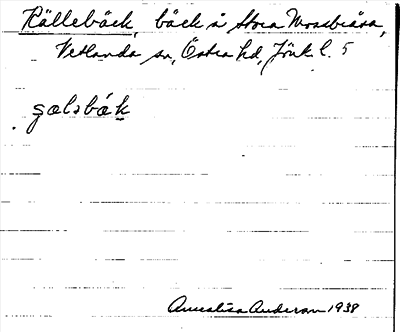 Källebäck, bäck å Stora Mossbråna,
Vetlanda sn, Östra hd, Jönk. l. 5
gælsbák
Annalisa Anderson 1938